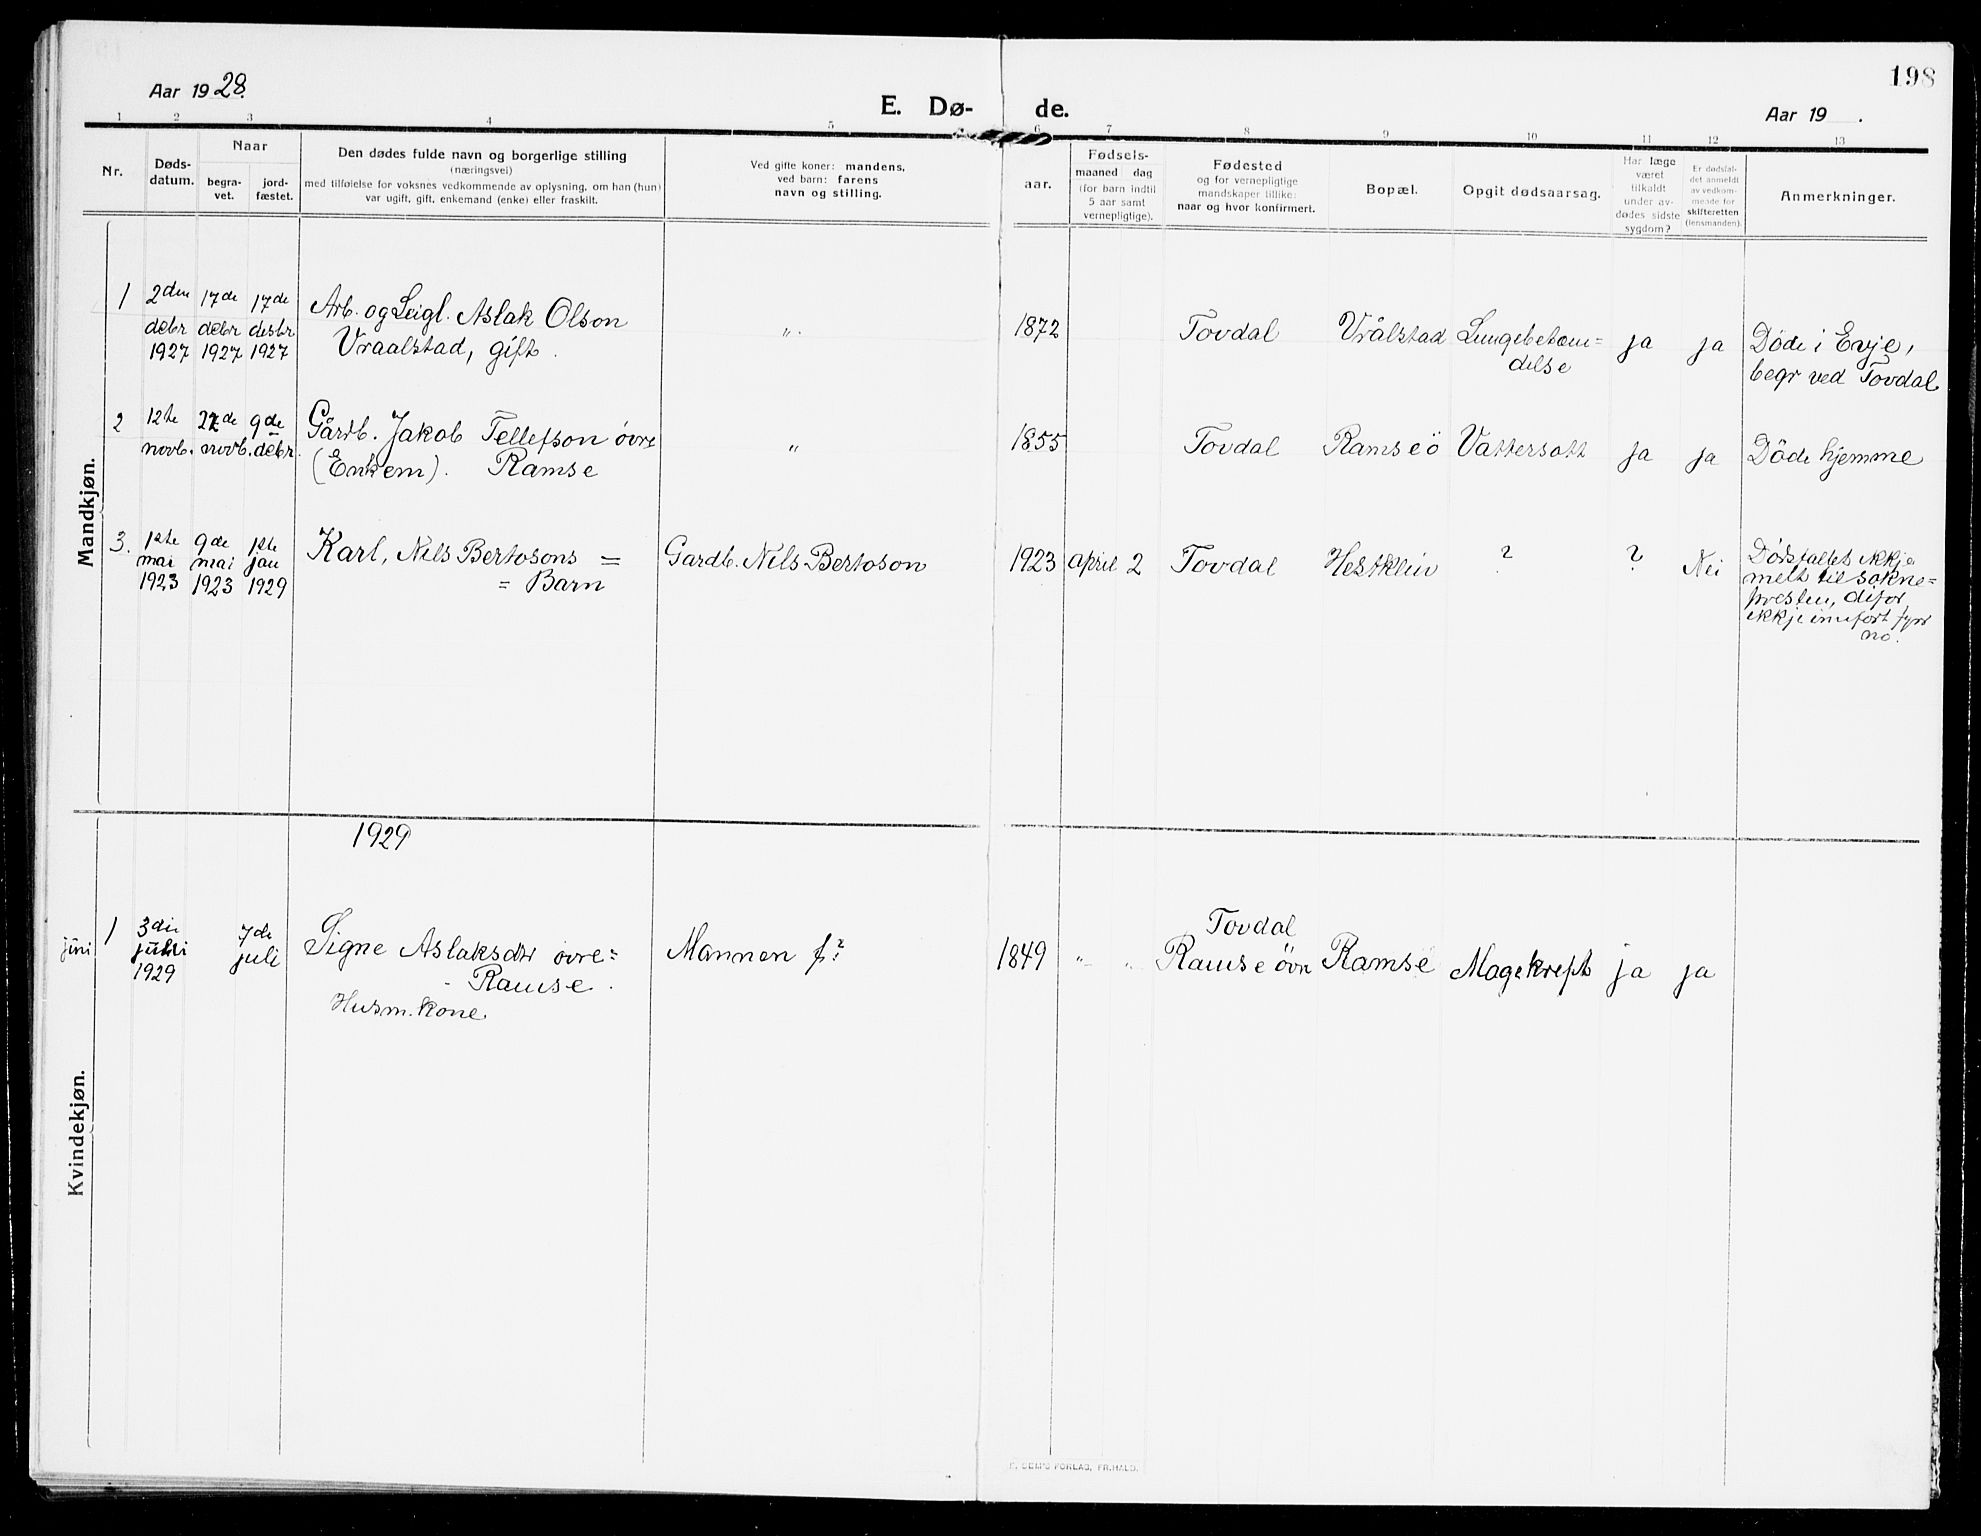 198
Aar 1928.
E. Dø- de.
Aar 19 .
1 2 3 4 5 6 7 8 9 10 11 12 13
Nr.
Døds-
datum.
Naar
begra-
vet.
jord-
fæstet.
Den dødes fulde navn og borgerlige stilling
(næringsvei)
med tilføielse for voksnes vedkommende av oplysning, om han (hun)
var ugift, gift, enkemand (enke) eller fraskilt.
Ved gifte koner: mandens,
ved barn: farens
navn og stilling.
aar.
Fødsels-
maaned dag
(for barn indtil
5 aar samt
vernepligtige).
Fødested
og for vernepligtige
mandskaper tillike:
naar og hvor konfirmert.
Bopæl.
Opgit dødsaarsag.
Har læge
været
tilkaldt
under av-
dødes sidste
sygdom?
Er dødsfal-
det anmeldt
av vedkom-
mende for
skifteretten
(lensmanden).
Anmerkninger.
Mandkjøn.
1
2den
debr
1927
17de
debr
1927
17de
desbr
1927
Arb. og Leigl. Aslak Olson
Vraalstad, gift.
"
1872
Tovdal
Vrålstad
Lungebetæn=
delse
ja
ja
Døde i Evje,
begr ved Tovdal
2
12te
novb.
22de
novb.
9de
debr.
Gårdb. Jakob Tellefson övre
(Enkem). Ramse
"
1855
Tovdal
Ramseö
Vattersott
ja
ja
Døde hjemme
3.
1ste
mai
1923
9de
mai
1923
1ste
jan
1929
Karl, Nils Bertosons =
= Barn
Gardb. Nils Bertoson
1923
april 2
Tovdal
Hestklein
?
?
Nei
Dødsfallet ikkje
melt til sokne=
presten, difor
ikkje innført fyrr
no.
1929
Kvindekjøn.
juni
1
3die
juli
1929
7de
juli
Signe Aslaksdtr øvre=
- Ramse.
Husm.kone.
Mannen f?
1849
" "
Tovdal
Ramse övr
Ramse
Magekreft
ja
ja
E. SEM'S FORLAG, FR.HALD.